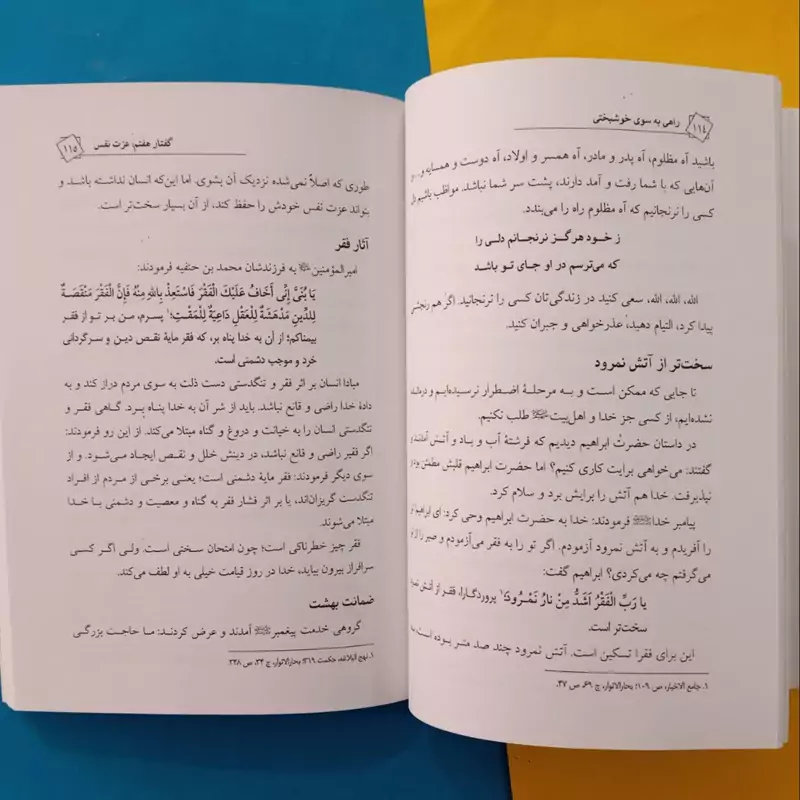 ۱۱۴ راهی به سوی خوشبختی
باشید آه مظلوم، آه پدر و مادر، آه همسر و اولاد، آه دوست و همسایه و...
آن‌هایی که با شما رفت و آمد دارند، پشت سر شما نباشد. مواظب باشیم دل
کسی را نرنجانیم که آه مظلوم راه را می‌بندد.
ز خود هرگز نرنجانم دلی را
که می‌ترسم در او جای تو باشد
الله، الله، الله، سعی کنید در زندگی‌تان کسی را نرنجانید. اگر هم رنجشی
پیدا کرد، التیام دهید، عذرخواهی و جبران کنید.
سخت‌تر از آتش نمرود
تا جایی که ممکن است و به مرحلهٔ اضطرار نرسیده‌ایم و درمانده
نشده‌ایم، از کسی جز خدا و اهل‌بیت طلب نکنیم.
در داستان حضرت ابراهیم دیدیم که فرشتهٔ آب و باد و آتش آمدند و
گفتند: می‌خواهی برایت کاری کنیم؟ اما حضرت ابراهیم قلبش مطمئن بود و
نپذیرفت. خدا هم آتش را برایش برد و سلام کرد.
پیامبر خدا فرمودند: خدا به حضرت ابراهیم وحی کرد: ای ابراهیم تو
را آفریدم و به آتش نمرود آزمودم. اگر تو را به فقر می‌آزمودم و صبر را از تو
می‌گرفتم چه می‌کردی؟ ابراهیم گفت:
یا رَبِّ الْفَقْرُ أَشَدُّ مِنْ نارِ نَمْرُودَ؛۱ پروردگارا، فقر از آتش نمرود
سخت‌تر است.
این برای فقرا تسکین است. آتش نمرود چند صد متر بوده است،
۱. جامع الاخبار، ص ۱۰۹؛ بحارالانوار، ج ۶۹، ص ۴۷.
گفتار هفتم: عزت نفس ۱۱۵
طوری که اصلاً نمی‌شده نزدیک آن بشوی. اما این‌که انسان نداشته باشد و
بتواند عزت نفس خودش را حفظ کند، از آن بسیار سخت‌تر است.
آثار فقر
امیرالمؤمنین به فرزندشان محمد بن حنفیه فرمودند:
یَا بُنَیَّ إِنِّی أَخَافُ عَلَیْکَ الْفَقْرَ فَاسْتَعِذْ بِاللهِ مِنْهُ فَإِنَّ الْفَقْرَ مَنْقَصَةٌ
لِلدِّینِ مَدْهَشَةٌ لِلْعَقْلِ دَاعِیَةٌ لِلْمَقْتِ؛۱ پسرم، من بر تو از فقر
بیمناکم؛ از آن به خدا پناه بر، که فقر مایهٔ نقص دین و سرگردانی
خرد و موجب دشمنی است.
مبادا انسان بر اثر فقر و تنگدستی دست ذلت به سوی مردم دراز کند و به
دادهٔ خدا راضی و قانع نباشد. باید از شر آن به خدا پناه برد. گاهی فقر و
تنگدستی انسان را به خیانت و دروغ و گناه مبتلا می‌کند. از این رو فرمودند:
اگر فقیر راضی و قانع نباشد، در دینش خلل و نقص ایجاد می‌شود. و از
سوی دیگر فرمودند: فقر مایهٔ دشمنی است؛ یعنی برخی از مردم از افراد
تنگدست گریزان‌اند، یا بر اثر فشار فقر به گناه و معصیت و دشمنی با خدا
مبتلا می‌شوند.
فقر چیز خطرناکی است؛ چون امتحان سختی است. ولی اگر کسی
سرافراز بیرون بیاید، خدا در روز قیامت خیلی به او لطف می‌کند.
ضمانت بهشت
گروهی خدمت پیغمبر آمدند و عرض کردند: ما حاجت بزرگی
۱. نهج البلاغه، حکمت ۳۱۹؛ بحارالانوار، ج ۳۴، ص ۳۴۸.